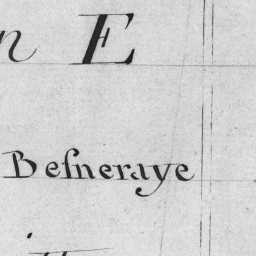 n E
Beſneraye